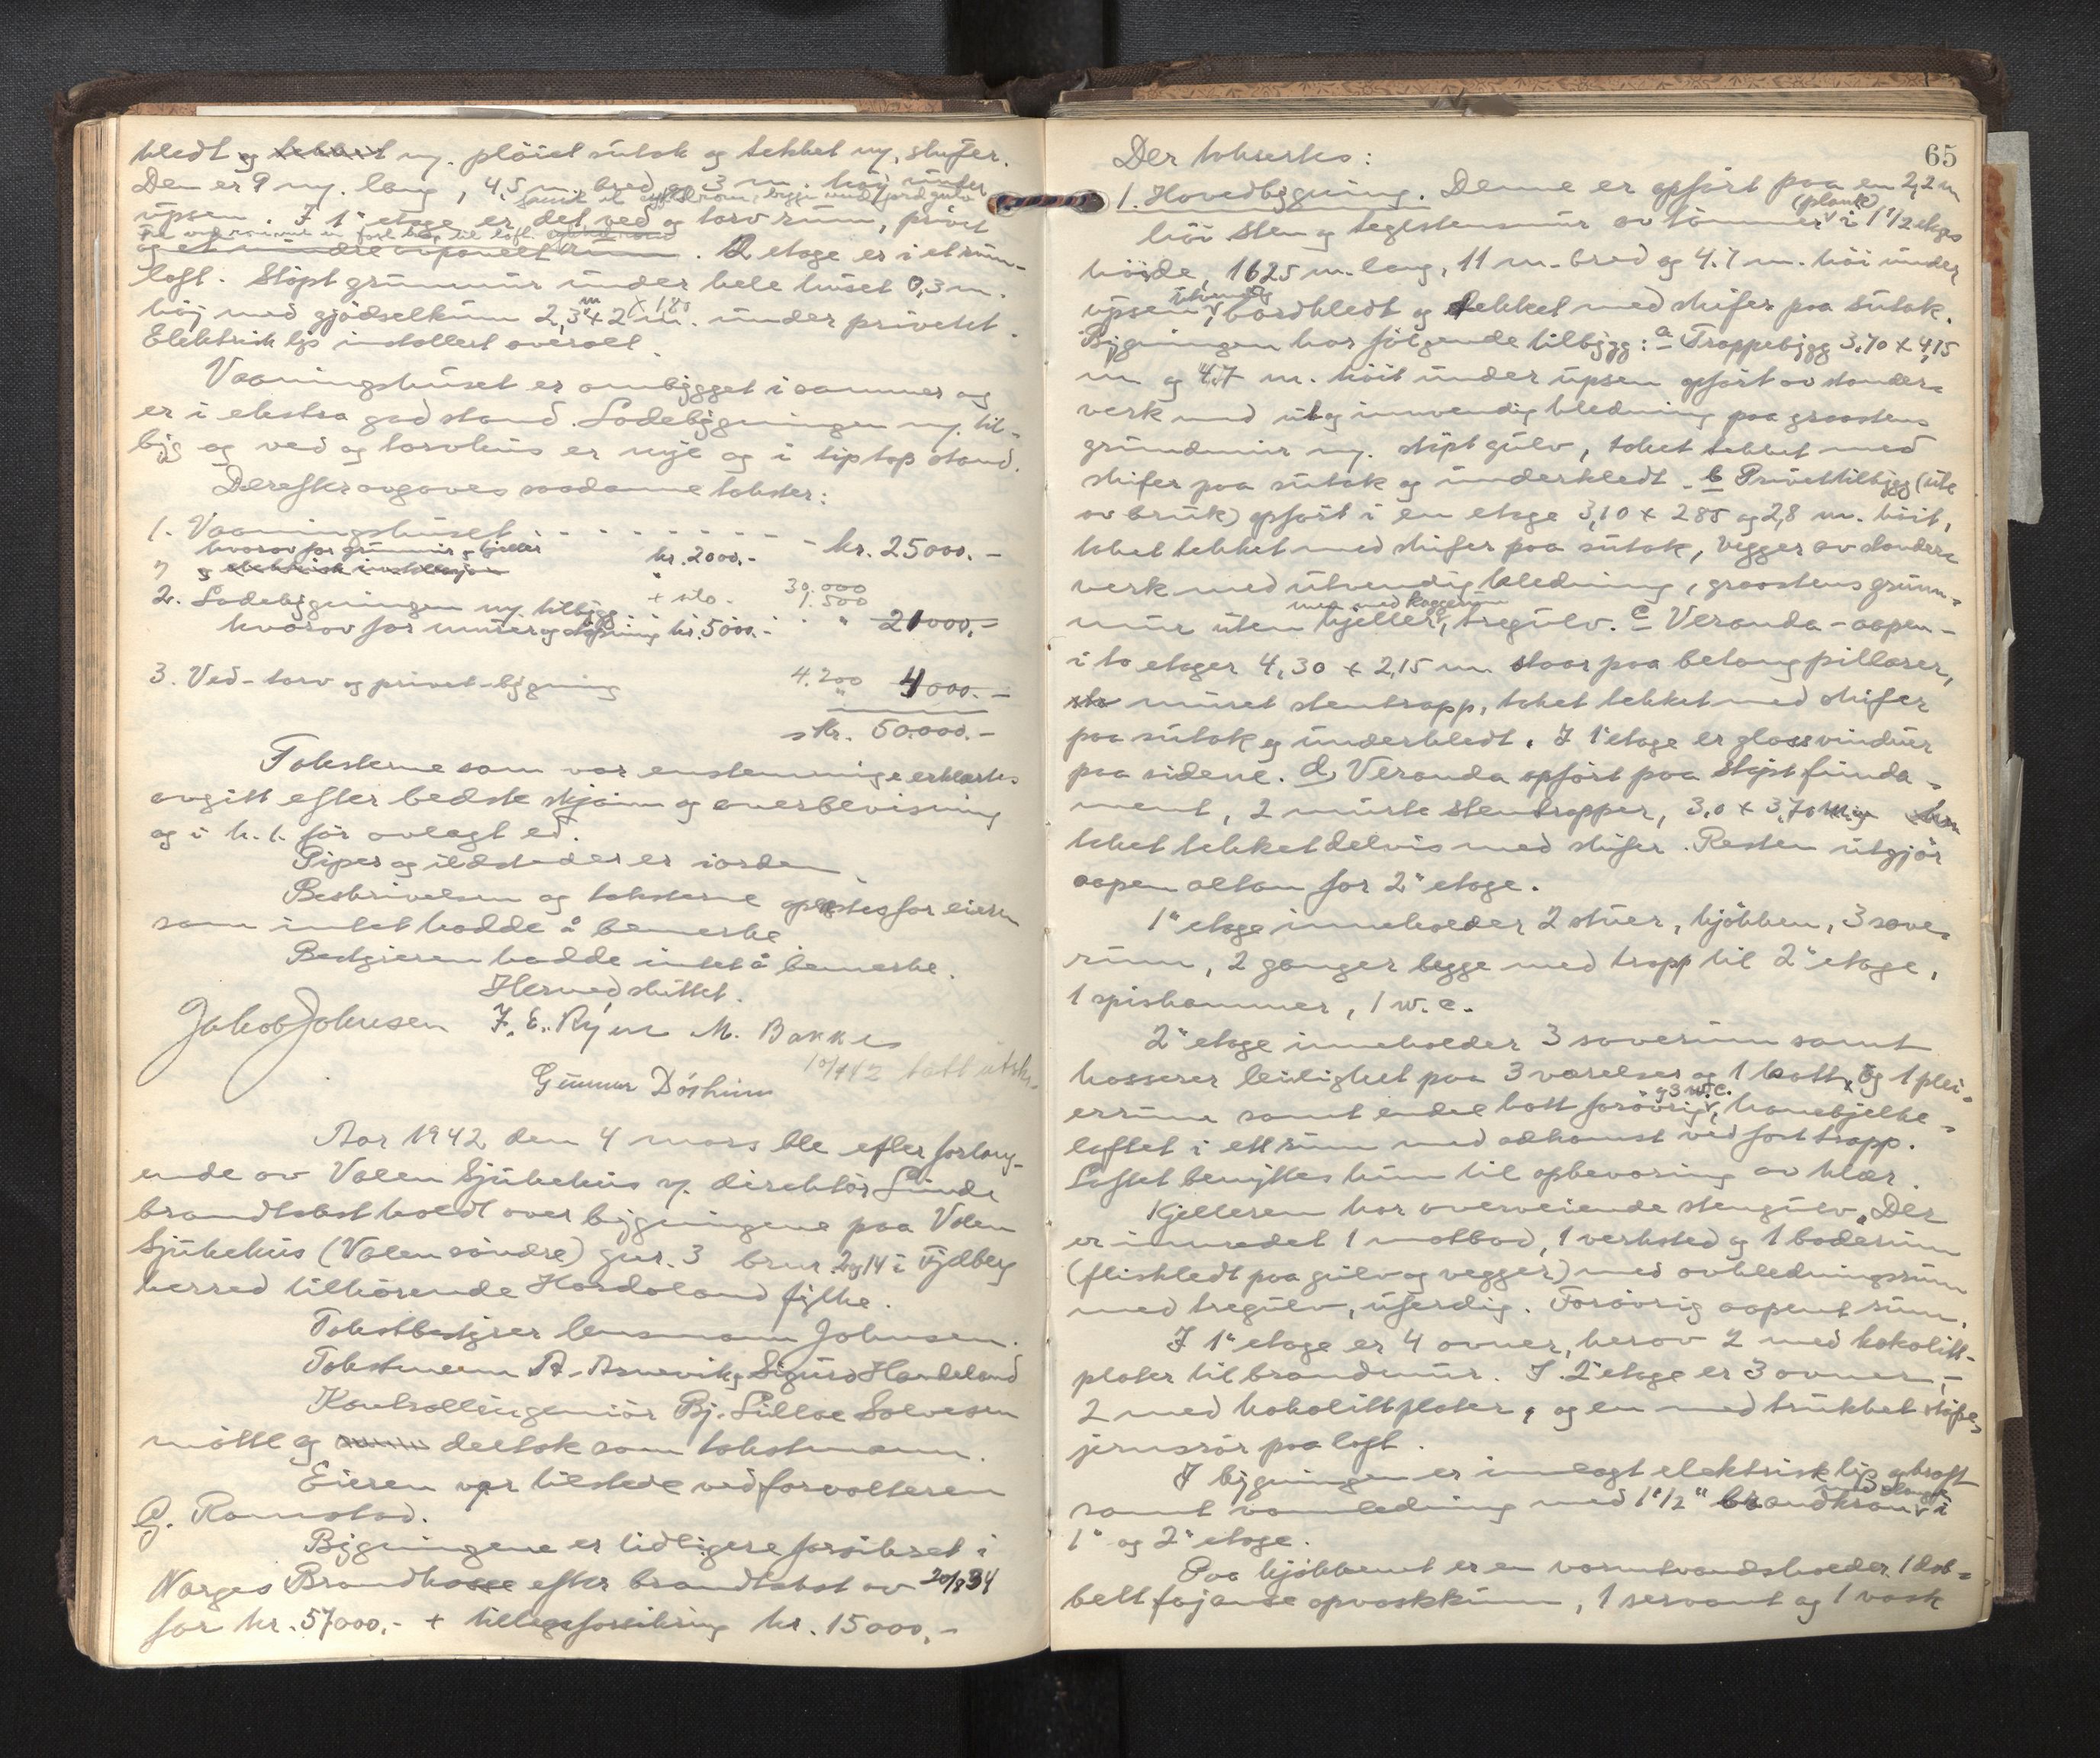 kledt og tekket m. pløiet sutak og tekket m. skifer.
Den er 9 m. lang, 4,5 m. bred og 3 m. høi under
samt et rum, begge med jord gulv
upsen. I 1" etage er det ved og torv rum, privet
fra vedrummet en fast trap til loft
og et mindre avpanelt rum. 2 etage er i et rum -
loft. Støpt grunmur under hele huset 0,3 m.
høj med gjødselkum 2,3 m x 2 m. x 180 under privetet.
Elektrisk lys installert overalt.
Vaaningshuset er ombygget i sommer og
er i ekstra god stand. Løebygningen m. til-
byg og ved og torvhus er nye og i tip top stand.
Derefter avgaves saadanne takster:
1. Vaaningshuset - - - - - - - - - kr. 25000.-
hvorav for grunmur og kjeller kr. 2000.-
" og elektrisk installasjon
2. Løebygningen m. tilbygg + silo. 30.000 1.500
hvorav for murer og støpning kr. 5000.- " 21000.-
3. Ved- torv og privet-bygning 4.200 " 4000.-
skr. 50.000.-
Taksterne som var enstemmige erklærtes
avgitt efter bedste skjønn og overbevisning
og i h. t. før avlagt ed.
Piper og ildsteder er i orden.
Beskrivelsen og taksterne oplæstes for eieren
som intet hadde å bemerke
Bestyreren hadde intet å bemerke.
Hermed sluttet.
Jakob Johnsen F. E. Røyen M. Bakke
10/4 42 tatt utskr.
Gunnar Døsheim
Aar 1942 den 4 mars ble efter forlang-
ende av Valen Sjukehus v. direktør Lunde
brandtakst holdt over bygningene paa Valen
Sjukehus (Valen søndre) gnr. 3 brnr. 2 og 14 i Fjelberg
herred tilhørende Hordaland fylke.
Takstbestyrer lensmann Johnsen.
Takstmenn A. Arnevik og Sigurd Handeland
Kontrollingeniør Bj. Lilloe Salvesen
møtte og deltok som takstmann.
Eieren var tilstede ved forvalteren
G. Ramstad.
Bygningene er tidligere forsikret i
Norges Brandkasse efter brandtakst av 20/8 34
for kr. 57000.- + tilleggsforsikring kr. 15000.-
65
Der taksertes:
1. Hovedbygning. Denne er opført paa en 2,2 m
høi sten og teglstensmur av tømmer (plank) i 1 1/2 etages
høide, 16.25 m. lang, 11 m. bred og 4.7 m. høi under
upsen, utvendig bordkledt og tekket med skifer paa sutak.
Bygningen har følgende tilbygg: a Trappebygg 3,70 x 4,15
m og 4,7 m. høit under upsen opført av stender-
verk med ut og innvendig kledning paa graastens
grundmur m. støpt gulv, taket tekket med
skifer paa sutak og underkledt. b Privettilbygg (ute
av bruk) opført i en etage 3,10 x 2.85 og 2,8 m. høit,
taket tekket med skifer paa sutak, vegger av stender-
verk med utvendig kledning, graastens grunn-
mur uten kjeller, men med kaggerum tregulv. c Veranda - aapen -
i to etager 4,30 x 2,15 m staar paa betongpillarer,
muret stentrapp, taket tekket med skifer
paa sutak og underkledt. I 1 etage er glassvinduer
paa sidene. d, Veranda opført paa støpt funda-
ment, 2 murte stentrapper, 3,0 x 3,70 m og
taket tekket delvis med skifer. Resten utgjør
aapen altan for 2" etage.
1" etage inneholder 2 stuer, kjøkken, 3 sove-
rum, 2 ganger begge med trapp til 2" etage,
1 spiskammer, 1 w.c.
2" etage inneholder 3 soverum samt
kasserer leilighet paa 3 værelser og 1 kott, og 1 plei-
errum samt endel kott forøvrig, og 3 w.c. hanebjelke-
loftet i ett rum med adkomst ved fast trapp.
Loftet benyttes kun til opbevaring av klær.
Kjelleren har overveiende stengulv. Der
er innredet 1 matbod, 1 verksted og 1 baderum
(fliskledt paa gulv og vegger) med avkledningsrum
med tregulv, uferdig. Forøvrig aapent rum.
I 1" etage er 4 ovner, herav 2 med kokolitt-
plater til brandmur. I 2" etage er 3 ovner, -
2 med kokolittplater, og en med trukket støpe-
jernsrør paa loft.
I bygningen er innlagt elektrisk lys og kraft
samt vannledning med 1 1/2" brandkran med slange i
1" og 2" etage.
Paa kjøkkenet er en varmtvandsbeholder, 1 dob-
belt fajanse opvaskkum, 1 servant og 1 vask